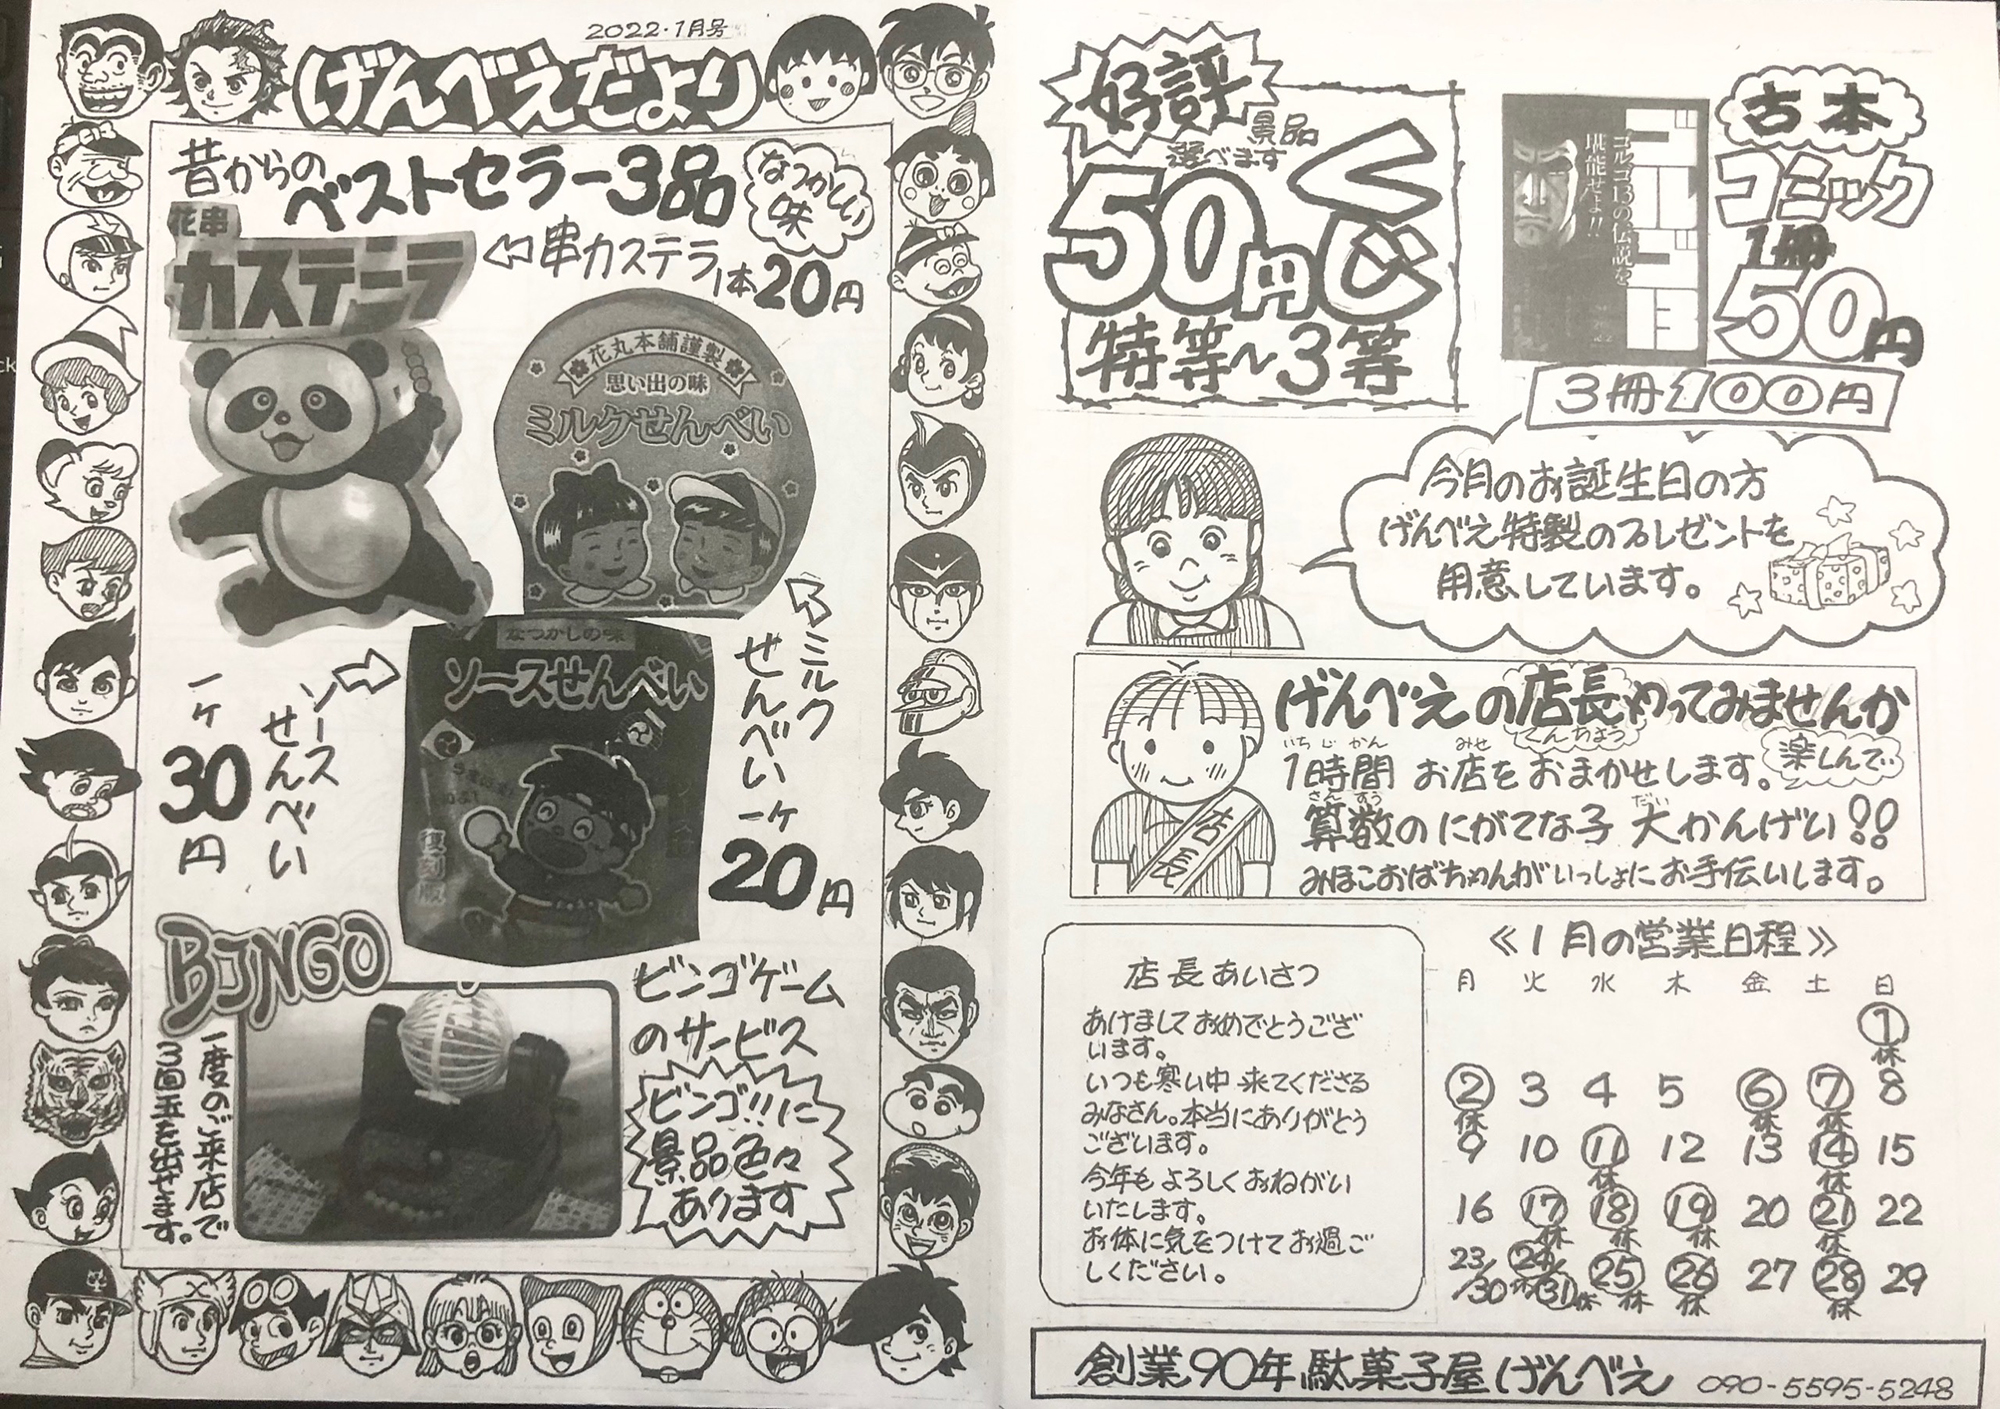 2022・1月号
げんべえだより
昔からの
ベストセラー3品
なつかしい
味
花串
カステーラ
⇦串カステラ1本20円
花丸本舗謹製
思い出の味
ミルクせんべい
ミルク
せんべい一ケ
20円
なつかしの味
ソースせんべい
復刻版
ソース
せんべい
一ケ
30円
BINGO
一度のご来店で
3回玉を出せます。
ビンゴゲーム
のサービス
ビンゴ!!に
景品色々
あります
好評
景品
選べます
50円くじ
特等〜3等
ゴルゴ13
ゴルゴ13の伝説を
堪能せよ!!
古本
コミック
1冊
50円
3冊100円
今月のお誕生日の方
げんべえ特製のプレゼントを
用意しています。
店長
げんべえの店長やってみませんか
てんちょう
いちじかん みせ
1時間 お店をおまかせします。
楽しんで
さんすう だい
算数のにがてな子 大かんげい!!
みほこおばちゃんがいっしょにお手伝いします。
店長あいさつ
あけましておめでとうござ
います。
いつも寒い中来てくださる
みなさん。本当にありがとう
ございます。
今年もよろしくおねがい
いたします。
お体に気をつけてお過ご
しください。
≪1月の営業日程≫
月 火 水 木 金 土 日
1
休
2 3 4 5 6 7 8
休 休 休
9 10 11 12 13 14 15
休 休
16 17 18 19 20 21 22
休 休 休 休
23/30 24/31 25 26 27 28 29
休 休 休 休 休
創業90年 駄菓子屋 げんべえ 090-5595-5248